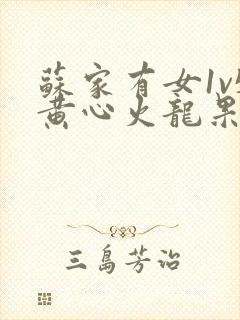 蘇家有女1v
黄心火龍果
三島芳治